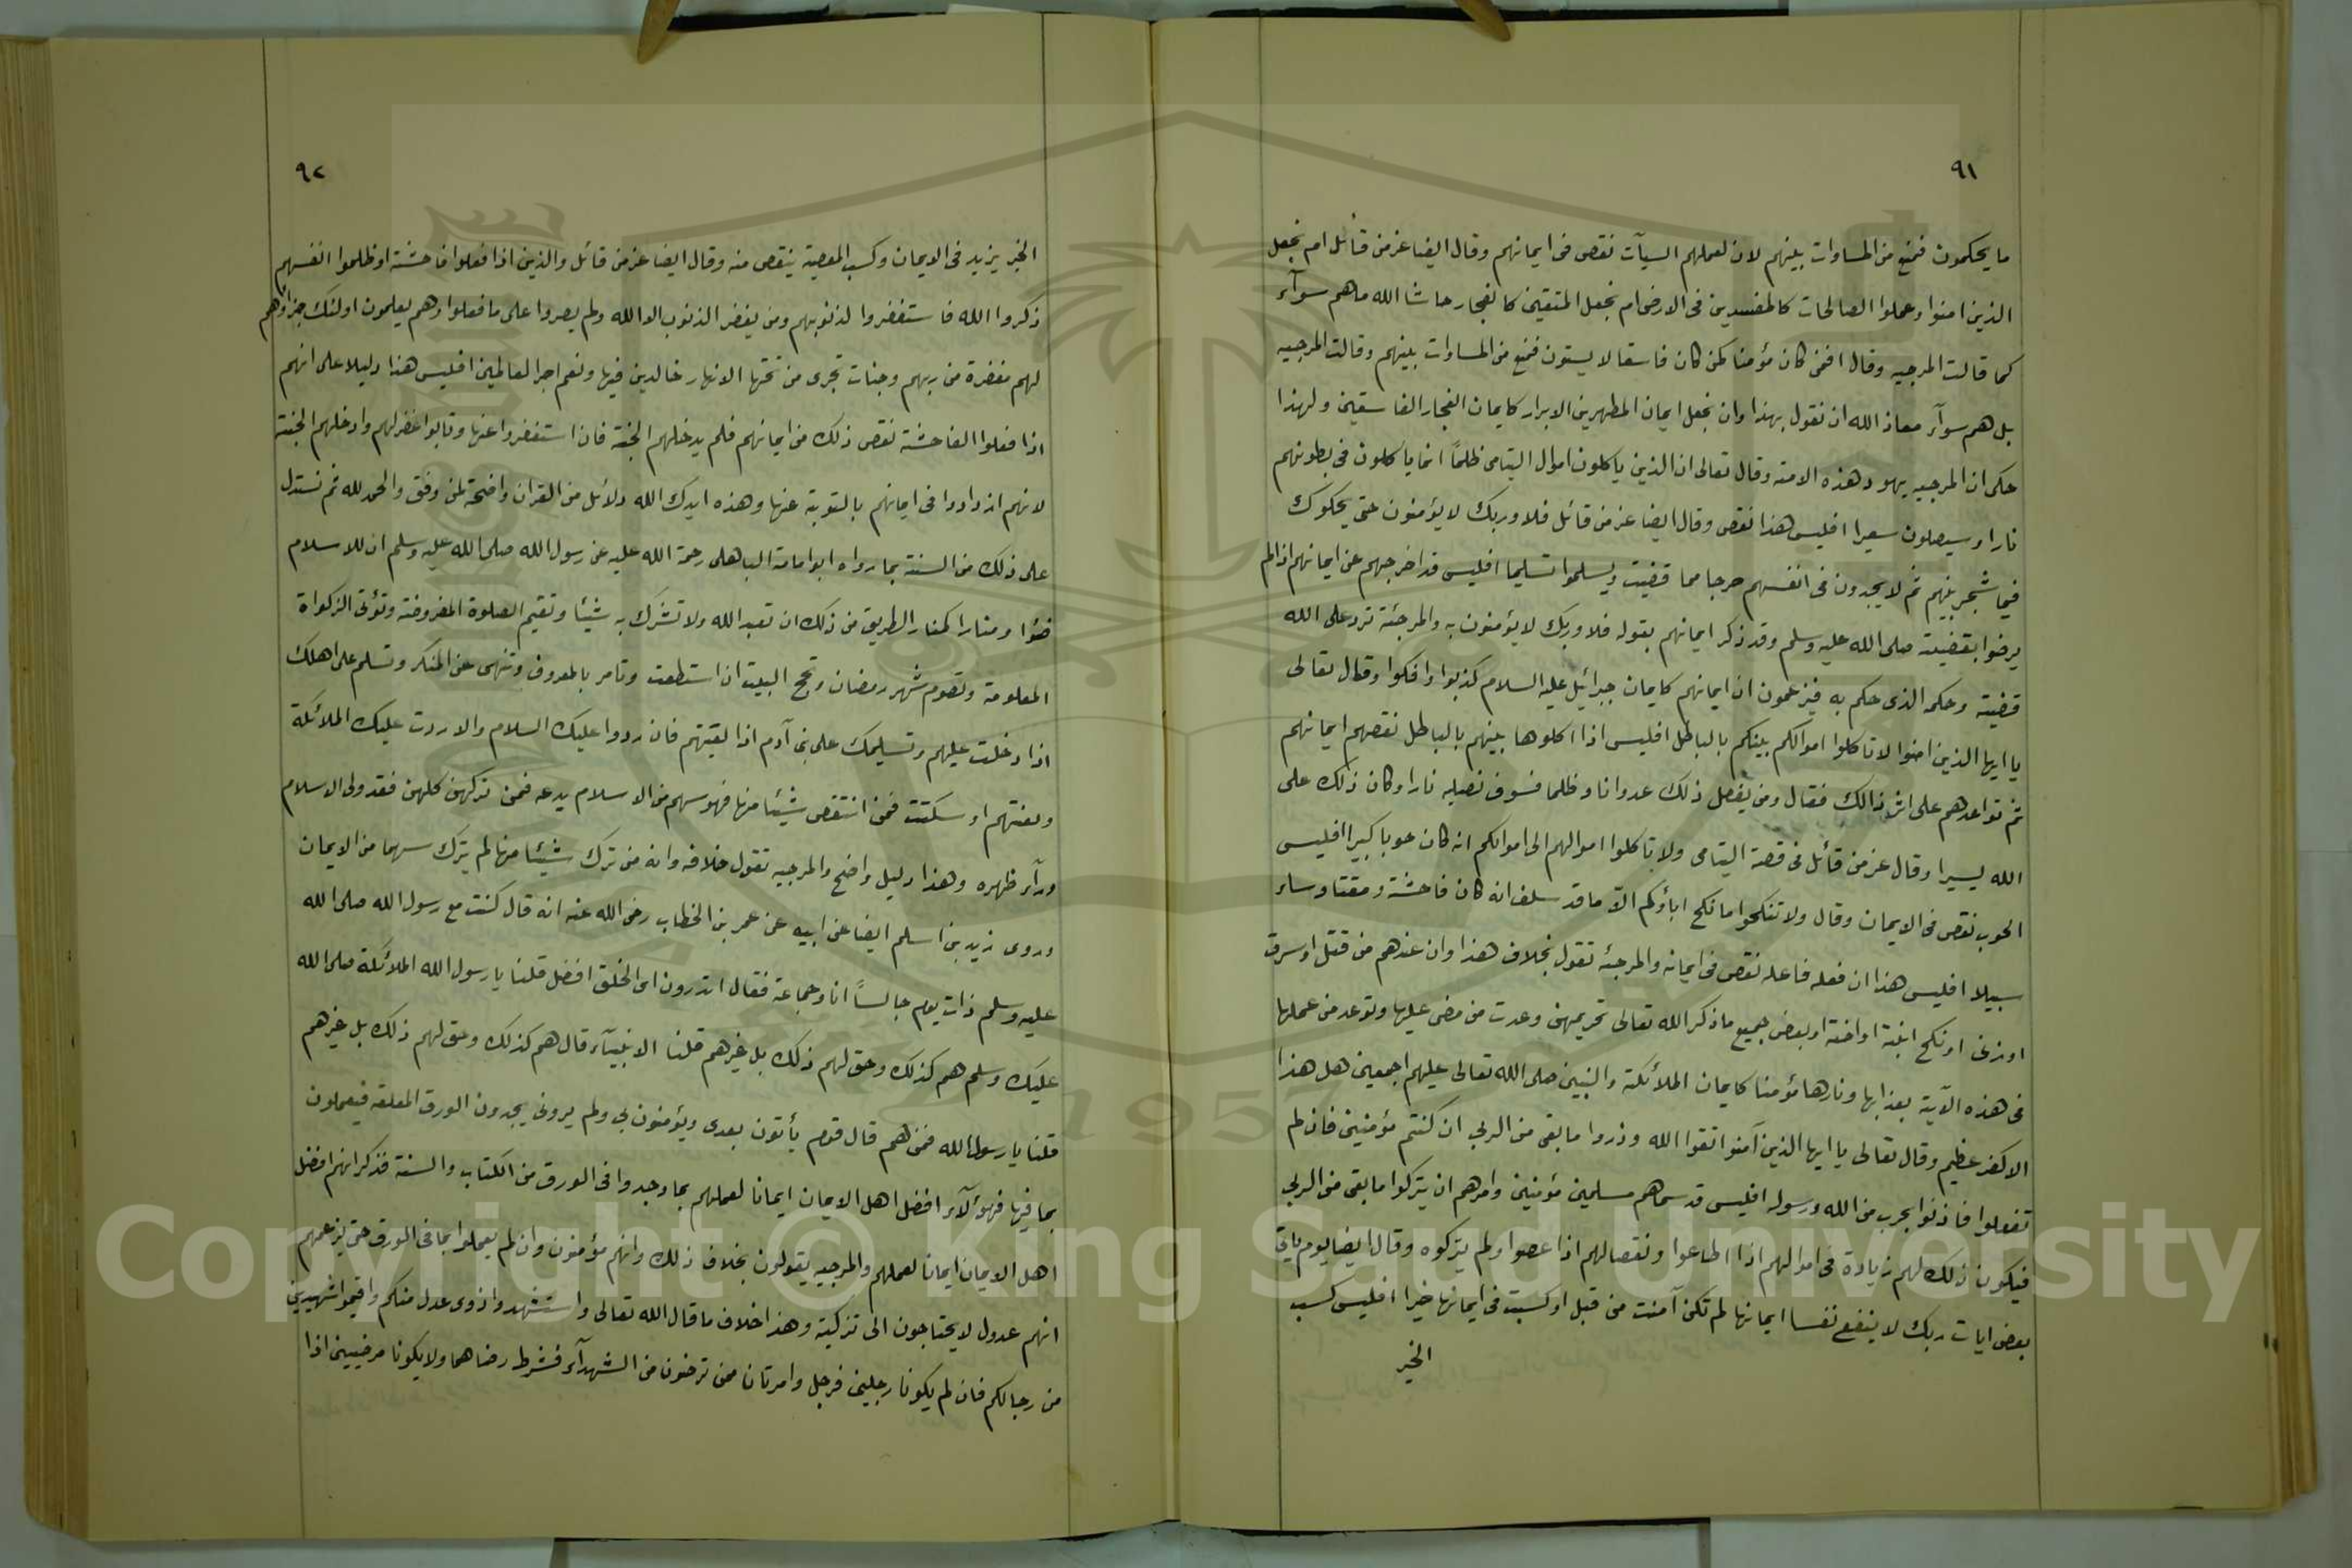 ٩١
ما يحكمون فمنع من المساوات بينهم لان لعملهم السيآت نقص فى ايمانهم وقال ايضا عز من قائل ام نجعل
الذين امنوا وعملوا الصالحات كالمفسدين فى الارض ام نجعل المتقين كالفجار حاشا الله ما هم سوآء
كما قالت المرجيه وقال افمن كان مؤمنا كمن كان فاسقا لا يستون فمنع من المساوات بينهم وقالت المرجيه
بل هم سوآء معاذ الله ان نقول بهذا وان نجعل ايمان المطهرين الابرار كايمان الفجار الفاسقين ولهذا
حكى ان المرجيه يهود هذه الامة وقال تعالى ان الذين ياكلون اموال اليتامى ظلماً انما ياكلون فى بطونهم
نارا وسيصلون سعيرا افليس هذا نقص وقال ايضا عز من قائل فلا وربك لا يؤمنون حتى يحكموك
فيما شجر بينهم ثم لا يجدون فى انفسهم حرجا مما قضيت ويسلموا تسليما افليس قد اخرجهم عن ايمانهم اذا لم
يرضوا بقضيته صلى الله عليه وسلم وقد ذكر ايمانهم بقوله فلا وربك لا يؤمنون به والمرجئة ترد على الله
قضيته وحكمه الذى حكم به فيزعمون ان ايمانهم كايمان جبرائيل عليه السلام كذبوا وافكوا وقال تعالى
يا ايها الذين امنوا لا تاكلوا اموالكم بينكم بالباطل افليس اذا اكلوها بينهم بالباطل نقصهم ايمانهم
ثم تواعدهم على اثر ذالك فقال ومن يفعل ذلك عدوانا وظلما فسوف نصليه نارا وكان ذلك على
الله يسيرا وقال عز من قائل فى قصة اليتامى ولا تاكلوا اموالهم الى اموالكم انه كان حوبا كبيرا افليس
الحوب نقص فى الايمان وقال ولا تنكحوا ما نكح اباؤكم الاّ ما قد سلف انه كان فاحشة ومقتا وساء
سبيلا افليس هذا ان فعله فاعله نقص فى ايمانه والمرجئه تقول بخلاف هذا وان عندهم من قتل او سرق
او زنى او نكح ابنته او اخته او بعض جميع ما ذكر الله تعالى تحريمهن وعدت من مضى عليها وتوعد من عملها
فى هذه الآية بعذابها ونارها مؤمنا كايمان الملائكة والنبيين صلى الله تعالى عليهم اجمعين هل هذا
الا كفر عظيم وقال تعالى يا ايها الذين آمنوا اتقوا الله وذروا ما بقى من الربى ان كنتم مؤمنين فان لم
تفعلوا فاذنوا بحرب من الله ورسوله افليس قد سماهم مسلمين مؤمنين وامرهم ان يتركوا ما بقى من الربى
فيكون ذلك لهم زيادة فى اموالهم اذا اطاعوا ونقصا لهم اذا عصوا ولم يتركوه وقال ايضا يوم ياتى
بعض ايات ربك لا ينفع نفسا ايمانها لم تكن آمنت من قبل او كسبت فى ايمانها خيرا افليس كسب
الخير
٩٢
الخير يزيد فى الايمان وكسب المعصية ينقص منه وقال ايضا عز من قائل والذين اذا فعلوا فاحشة او ظلموا انفسهم
ذكروا الله فاستغفروا لذنوبهم ومن يغفر الذنوب الا الله ولم يصروا على ما فعلوا وهم يعلمون اولئك جزاؤهم
لهم مغفرة من ربهم وجنات تجرى من تحتها الانهار خالدين فيها ونعم اجر العالمين افليس هذا دليلا على انهم
اذا فعلوا الفاحشة نقص ذلك من ايمانهم فلم يدخلهم الجنة فان استغفروا عنها وتابوا غفر لهم وادخلهم الجنة
لانهم ازدادوا فى ايمانهم بالتوبة عنها وهذه ايدك الله دلائل من القران واضحة لمن وفق والحمد لله ثم نستدل
على ذلك من السنة بما رواه ابو امامة الباهلى رحمة الله عليه عن رسول الله صلى الله عليه وسلم ان للاسلام
ضؤا ومنارا كمنار الطريق من ذلك ان تعبد الله ولا تشرك به شيئا وتقيم الصلوة المفروضة وتؤتى الزكواة
المعلومة وتصوم شهر رمضان وتحج البيت ان استطعت وتامر بالمعروف وتنهى عن المنكر وتسلم على اهلك
اذا دخلت عليهم وتسليمك على بنى آدم اذا لقيتهم فان ردوا عليك السلام والا ردت عليك الملائكة
ولعنتهم او سكتت فمن انتقص شيئا منها فهو سهم من الاسلام يدعه فمن تركهن كلهن فقد ولى الاسلام
ورآء ظهره وهذا دليل واضح والمرجيه تقول خلافه وانه من ترك شيئا منها لم يترك سهما من الايمان
وروى زيد بن اسلم ايضا عن ابيه عن عمر بن الخطاب رضى الله عنه انه قال كنت مع رسول الله صلى الله
عليه وسلم ذات يوم جالساً انا وجماعة فقال اتدرون اى الخلق افضل قلنا يا رسول الله الملائكة صلى الله
عليك وسلم هم كذلك وحق لهم ذلك بل غيرهم قلنا الانبيآء قال هم كذلك وحق لهم ذلك بل غيرهم
قلنا يا رسول الله فمن هم قال قوم يأتون بعدى ويؤمنون بى ولم يرونى يجدون الورق المعلقه فيعملون
بما فيها فهؤلآء افضل اهل الايمان ايمانا لعملهم بما وجدوا فى الورق من الكتاب والسنة فذكر انهم افضل
اهل الايمان ايمانا لعملهم والمرجيه يقولون بخلاف ذلك وانهم مؤمنون وان لم يعملوا بما فى الورق حتى يزعمهم
انهم عدول لا يحتاجون الى تزكية وهذا خلاف ما قال الله تعالى واستشهدوا ذوى عدل منكم واقيموا شهيدين
من رجالكم فان لم يكونا رجلين فرجل وامرتان ممن ترضون من الشهدآء فشرط رضاهما ولا يكونا مرضيين اذا
Copyright © King Saud University
1957